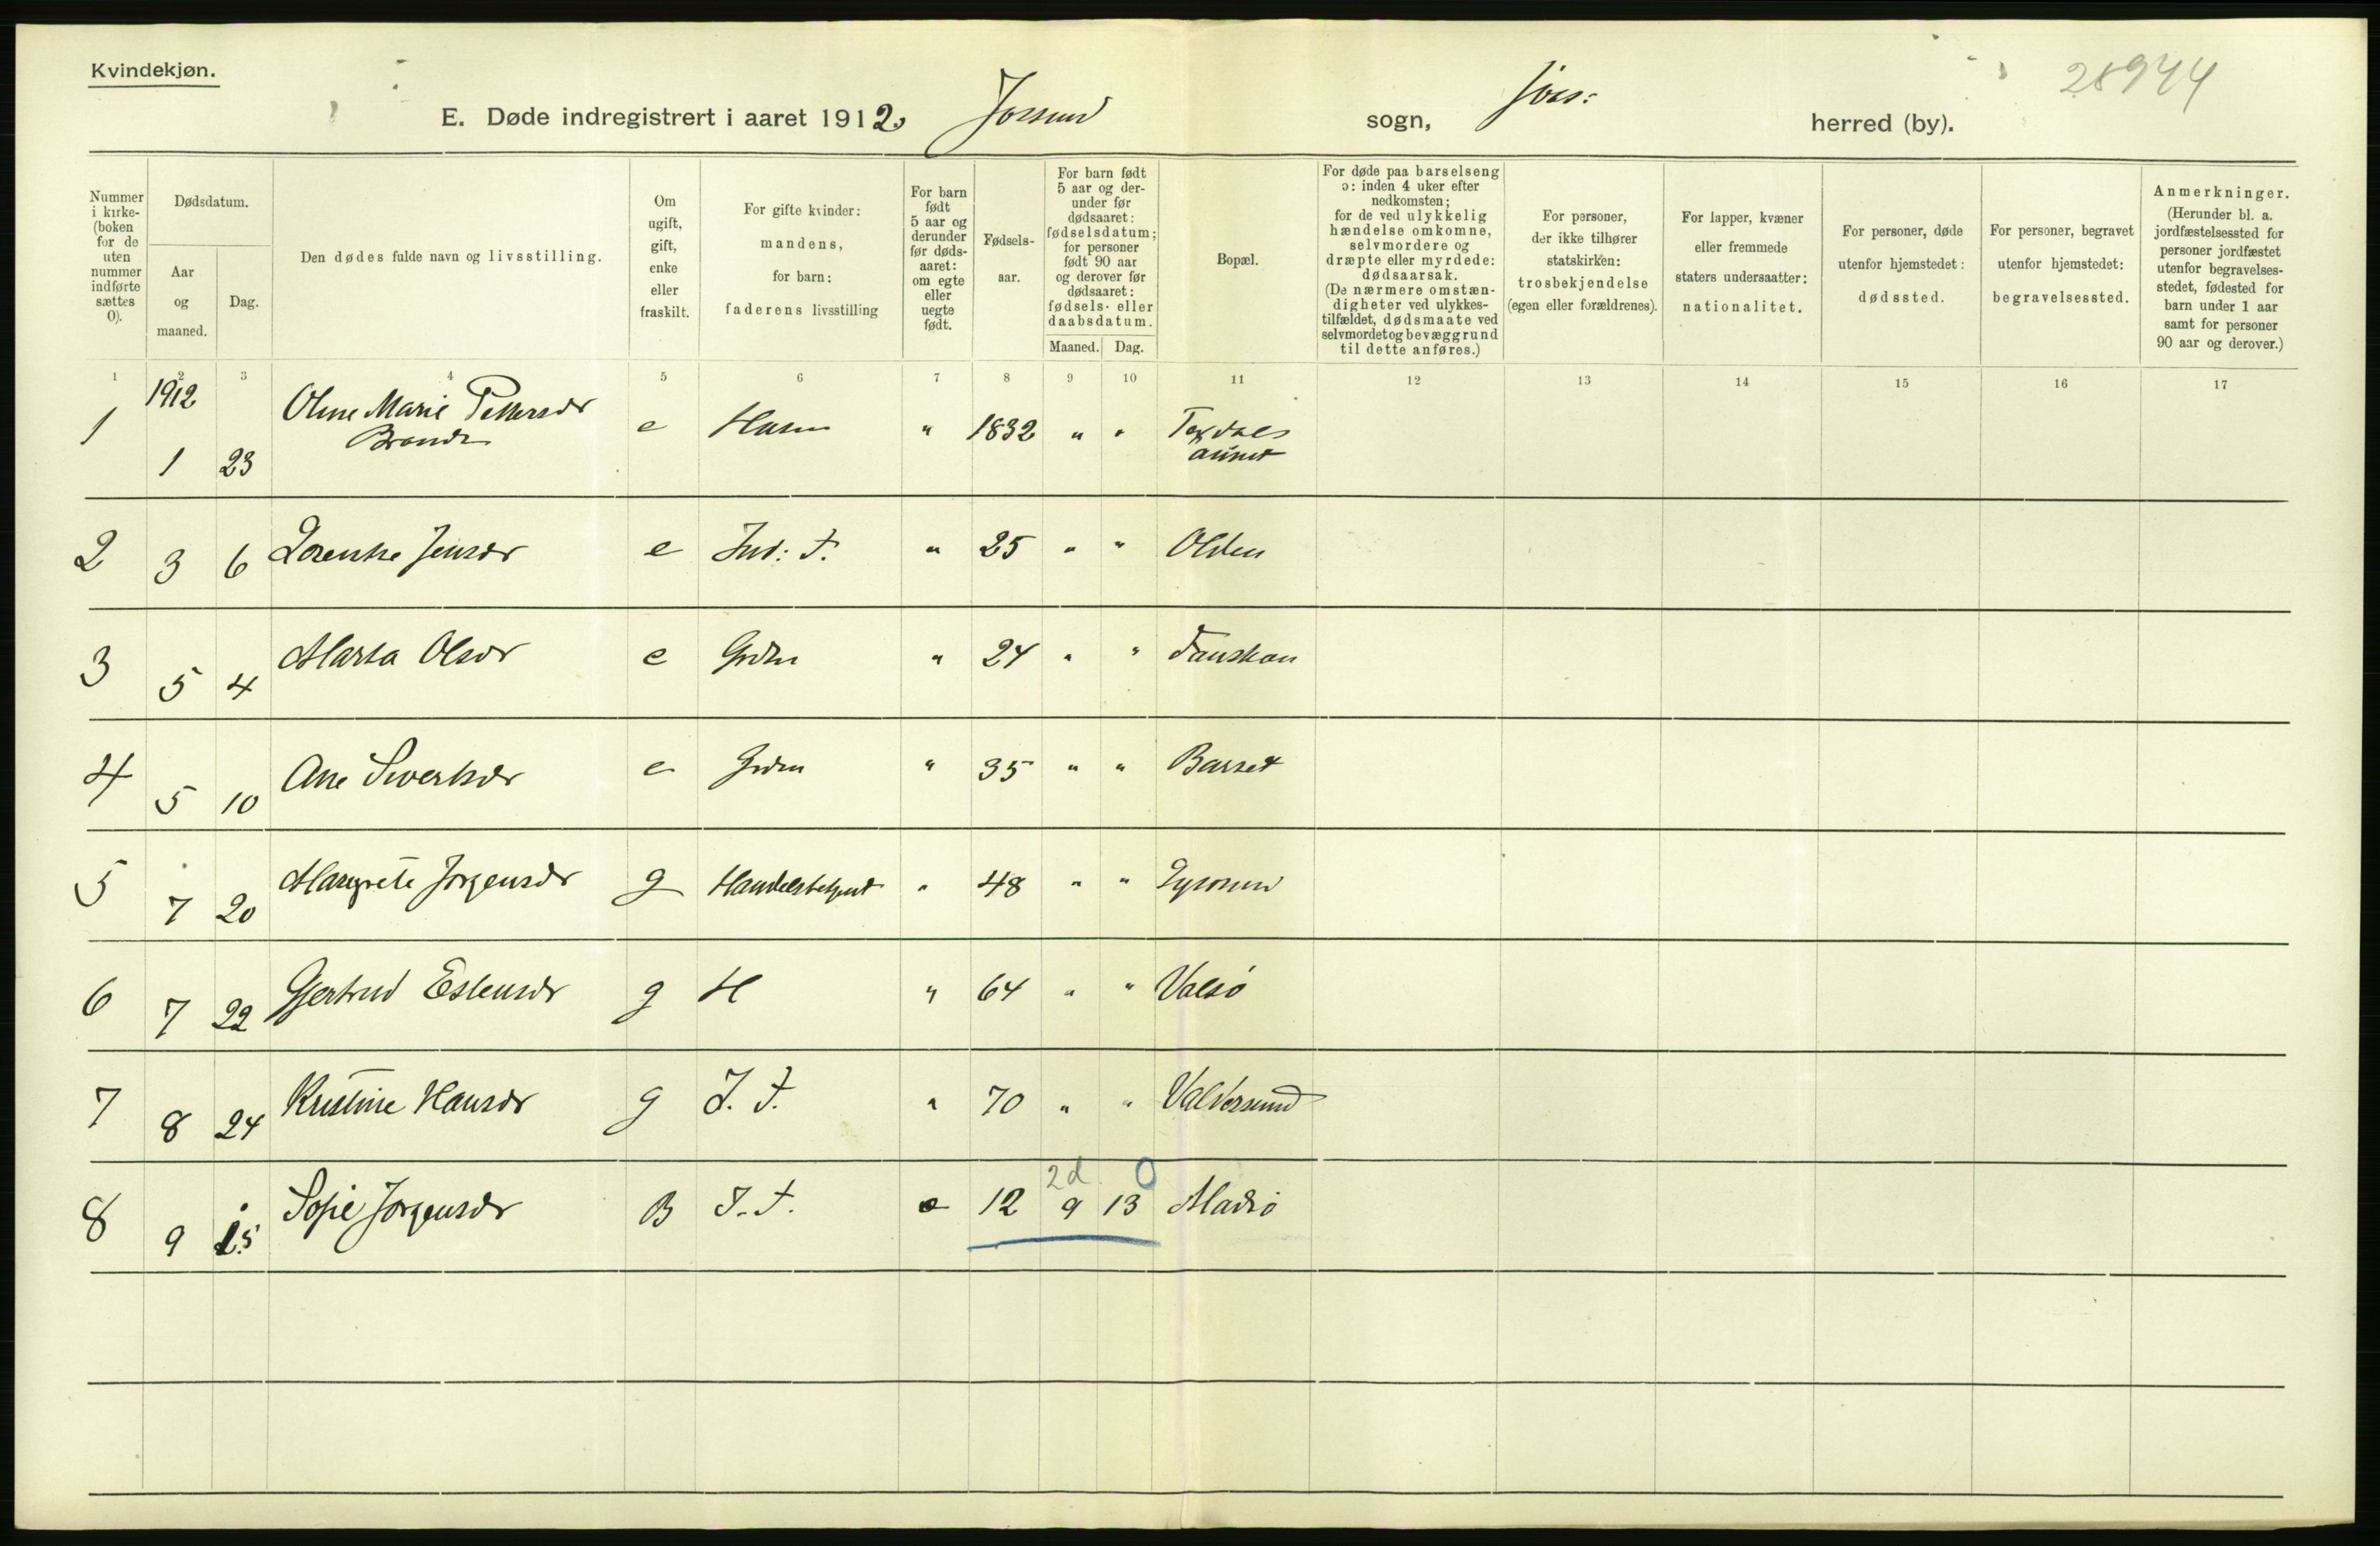 Kvindekjøn.
28944
E. Døde indregistrert i aaret 1912. Jossund sogn, herred (by).
Nummer i kirke- (boken for de uten nummer indførte sættes 0).
Dødsdatum.
Aar og maaned.
Dag.
Den dødes fulde navn og livsstilling.
Om ugift, gift, enke eller fraskilt.
For gifte kvinder: mandens, for barn: faderens livsstilling
For barn født 5 aar og derunder før døds- aaret: om egte eller uegte født.
Fødsels- aar.
For barn født 5 aar og der- under før dødsaaret: fødselsdatum; for personer født 90 aar og derover før dødsaaret: fødsels- eller daabsdatum.
Maaned. Dag.
Bopæl.
For døde paa barselseng ɔ: inden 4 uker efter nedkomsten; for de ved ulykkelig hændelse omkomne, selvmordere og dræpte eller myrdede: dødsaarsak. (De nærmere omstæn- digheter ved ulykkes- tilfældet, dødsmaate ved selvmordet og bevæggrund til dette anføres.)
For personer, der ikke tilhører statskirken: trosbekjendelse (egen eller forældrenes).
For lapper, kvæner eller fremmede staters undersaatter: nationalitet.
For personer, døde utenfor hjemstedet: dødssted.
For personer, begravet utenfor hjemstedet: begravelsessted.
Anmerkninger. (Herunder bl. a. jordfæstelsessted for personer jordfæstet utenfor begravelses- stedet, fødested for barn under 1 aar samt for personer 90 aar og derover.)
1 2 3 4 5 6 7 8 9 10 11 12 13 14 15 16 17
1912
1 1 23 Oline Marie Pettersdr e Husm " 1832 " " Tøxdals
aunet
2 3 6 Lorentse Jensdr e Ind: F. " 25 " " Olden
3 5 4 Marta Olsdr e Grdm " 24 " "
4 5 10 Ane Sivertsdr e Grdm " 35 " " Barset
5 7 20 Margrete Jørgensdr g Handelsbetjent " 48 " " Lysøsund
6 7 22 Gjertrud Estensdr g H " 64 " " Valsø
7 8 24 Kristine Hansdr g I. F. " 70 " " Valdersund
2d 0
8 9 15 Sofie Jørgensdr B I. F. e 12 9 13 Madsø